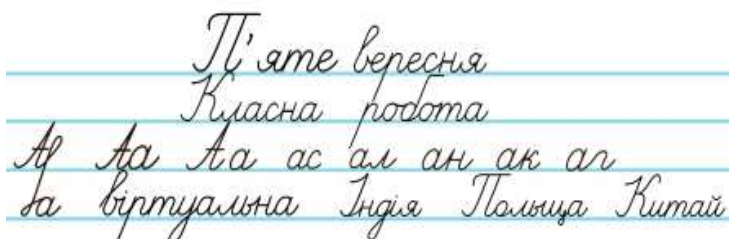 П'яте вересня
Класна робота
Аа Аа ас ал ан ак аг
віртуальна Індія Польща Китай